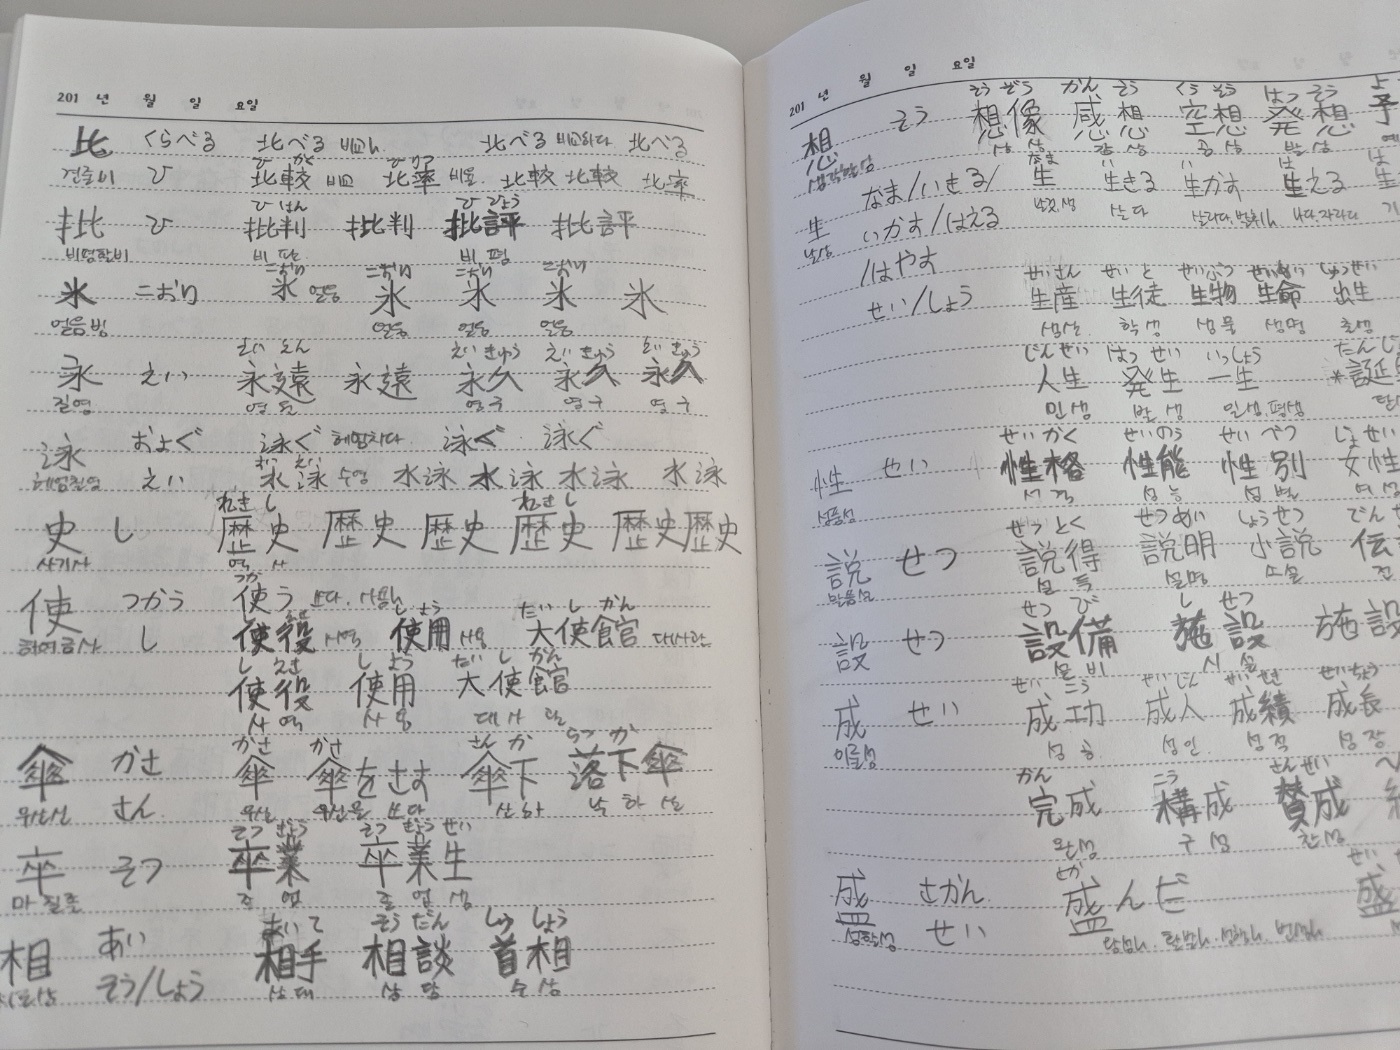 201 년 월 일 요일
比 くらべる 比べる 비교 比べる 비교하다 比べる
견줄비 ひ 比較 ひかく 비교 比率 ひりつ 비율 比較 比較 比率
批 ひ 批判 ひはん 批判 批評 ひひょう 批評
비평할비 비판 비평
氷 こおり 氷 こおり 얼음 氷 氷 こおり 氷 こおり 氷
얼음빙 얼음 얼음 얼음
永 えい 永遠 えいえん 永遠 永久 えいきゅう 永久 えいきゅう 永久 えいきゅう
길영 영원 영구 영구 영구
泳 およぐ 泳ぐ 헤엄치다 泳ぐ 泳ぐ
헤엄칠영 えい 水泳 すいえい 수영 水泳 水泳 水泳 水泳
史 し 歴史 れきし 歴史 歴史 歴史 れきし 歴史 歴史
사기사 역사
使 つかう 使う つか 쓰다. 사용
하여금사 し 使役 사역 使用 しよう 사용 大使館 たいしかん 대사관
使役 しえき 使用 しよう 大使館 たいしかん
사역 사용 대사관
傘 かさ 傘 かさ 傘をさす かさ 傘下 さんか 落下傘
우산산 さん 우산 우산을 쓰다 산하 낙하산
卒 そつ 卒業 そつぎょう 卒業生 そつぎょうせい
마칠졸 졸업 졸업생
相 あい 相手 あいて 相談 そうだん 首相 しゅしょう
そう/しょう 상대 상담 수상
201 년 월 일 요일
想 そう 想像 そうぞう 感想 かんそう 空想 くうそう 発想 はっそう 予
생각할상 상상 감상 공상 발상
生 なま/いきる/ 生 なま 生きる 生かす 生える 生
날생 いかす/はえる 날것.생 살다 살리다. 나다.자라다
/はやす
せい/しょう 生産 せいさん 生徒 せいと 生物 せいぶつ 生命 せいめい 出生 しゅっせい
생산 학생 생물 생명 출생
人生 じんせい 発生 はっせい 一生 いっしょう *誕
인생 발생 일생.평생
性 せい 性格 せいかく 性能 せいのう 性別 せいべつ 女性 じょせい
성품성 성격 성능 성별 여성
説 せつ 説得 せっとく 説明 せつめい 小説 しょうせつ 伝
말씀설 설득 설명 소설 전
設 せつ 設備 せつび 施設 しせつ 施設
설비 시설
成 せい 成功 せいこう 成人 せいじん 成績 せいせき 成長 せいちょう
이룰성 성공 성인 성적 성장
完成 かん 構成 こう 賛成 さんせい
완성 구성 찬성
盛 さかん 盛んだ さか 盛 せい
성할성 せい